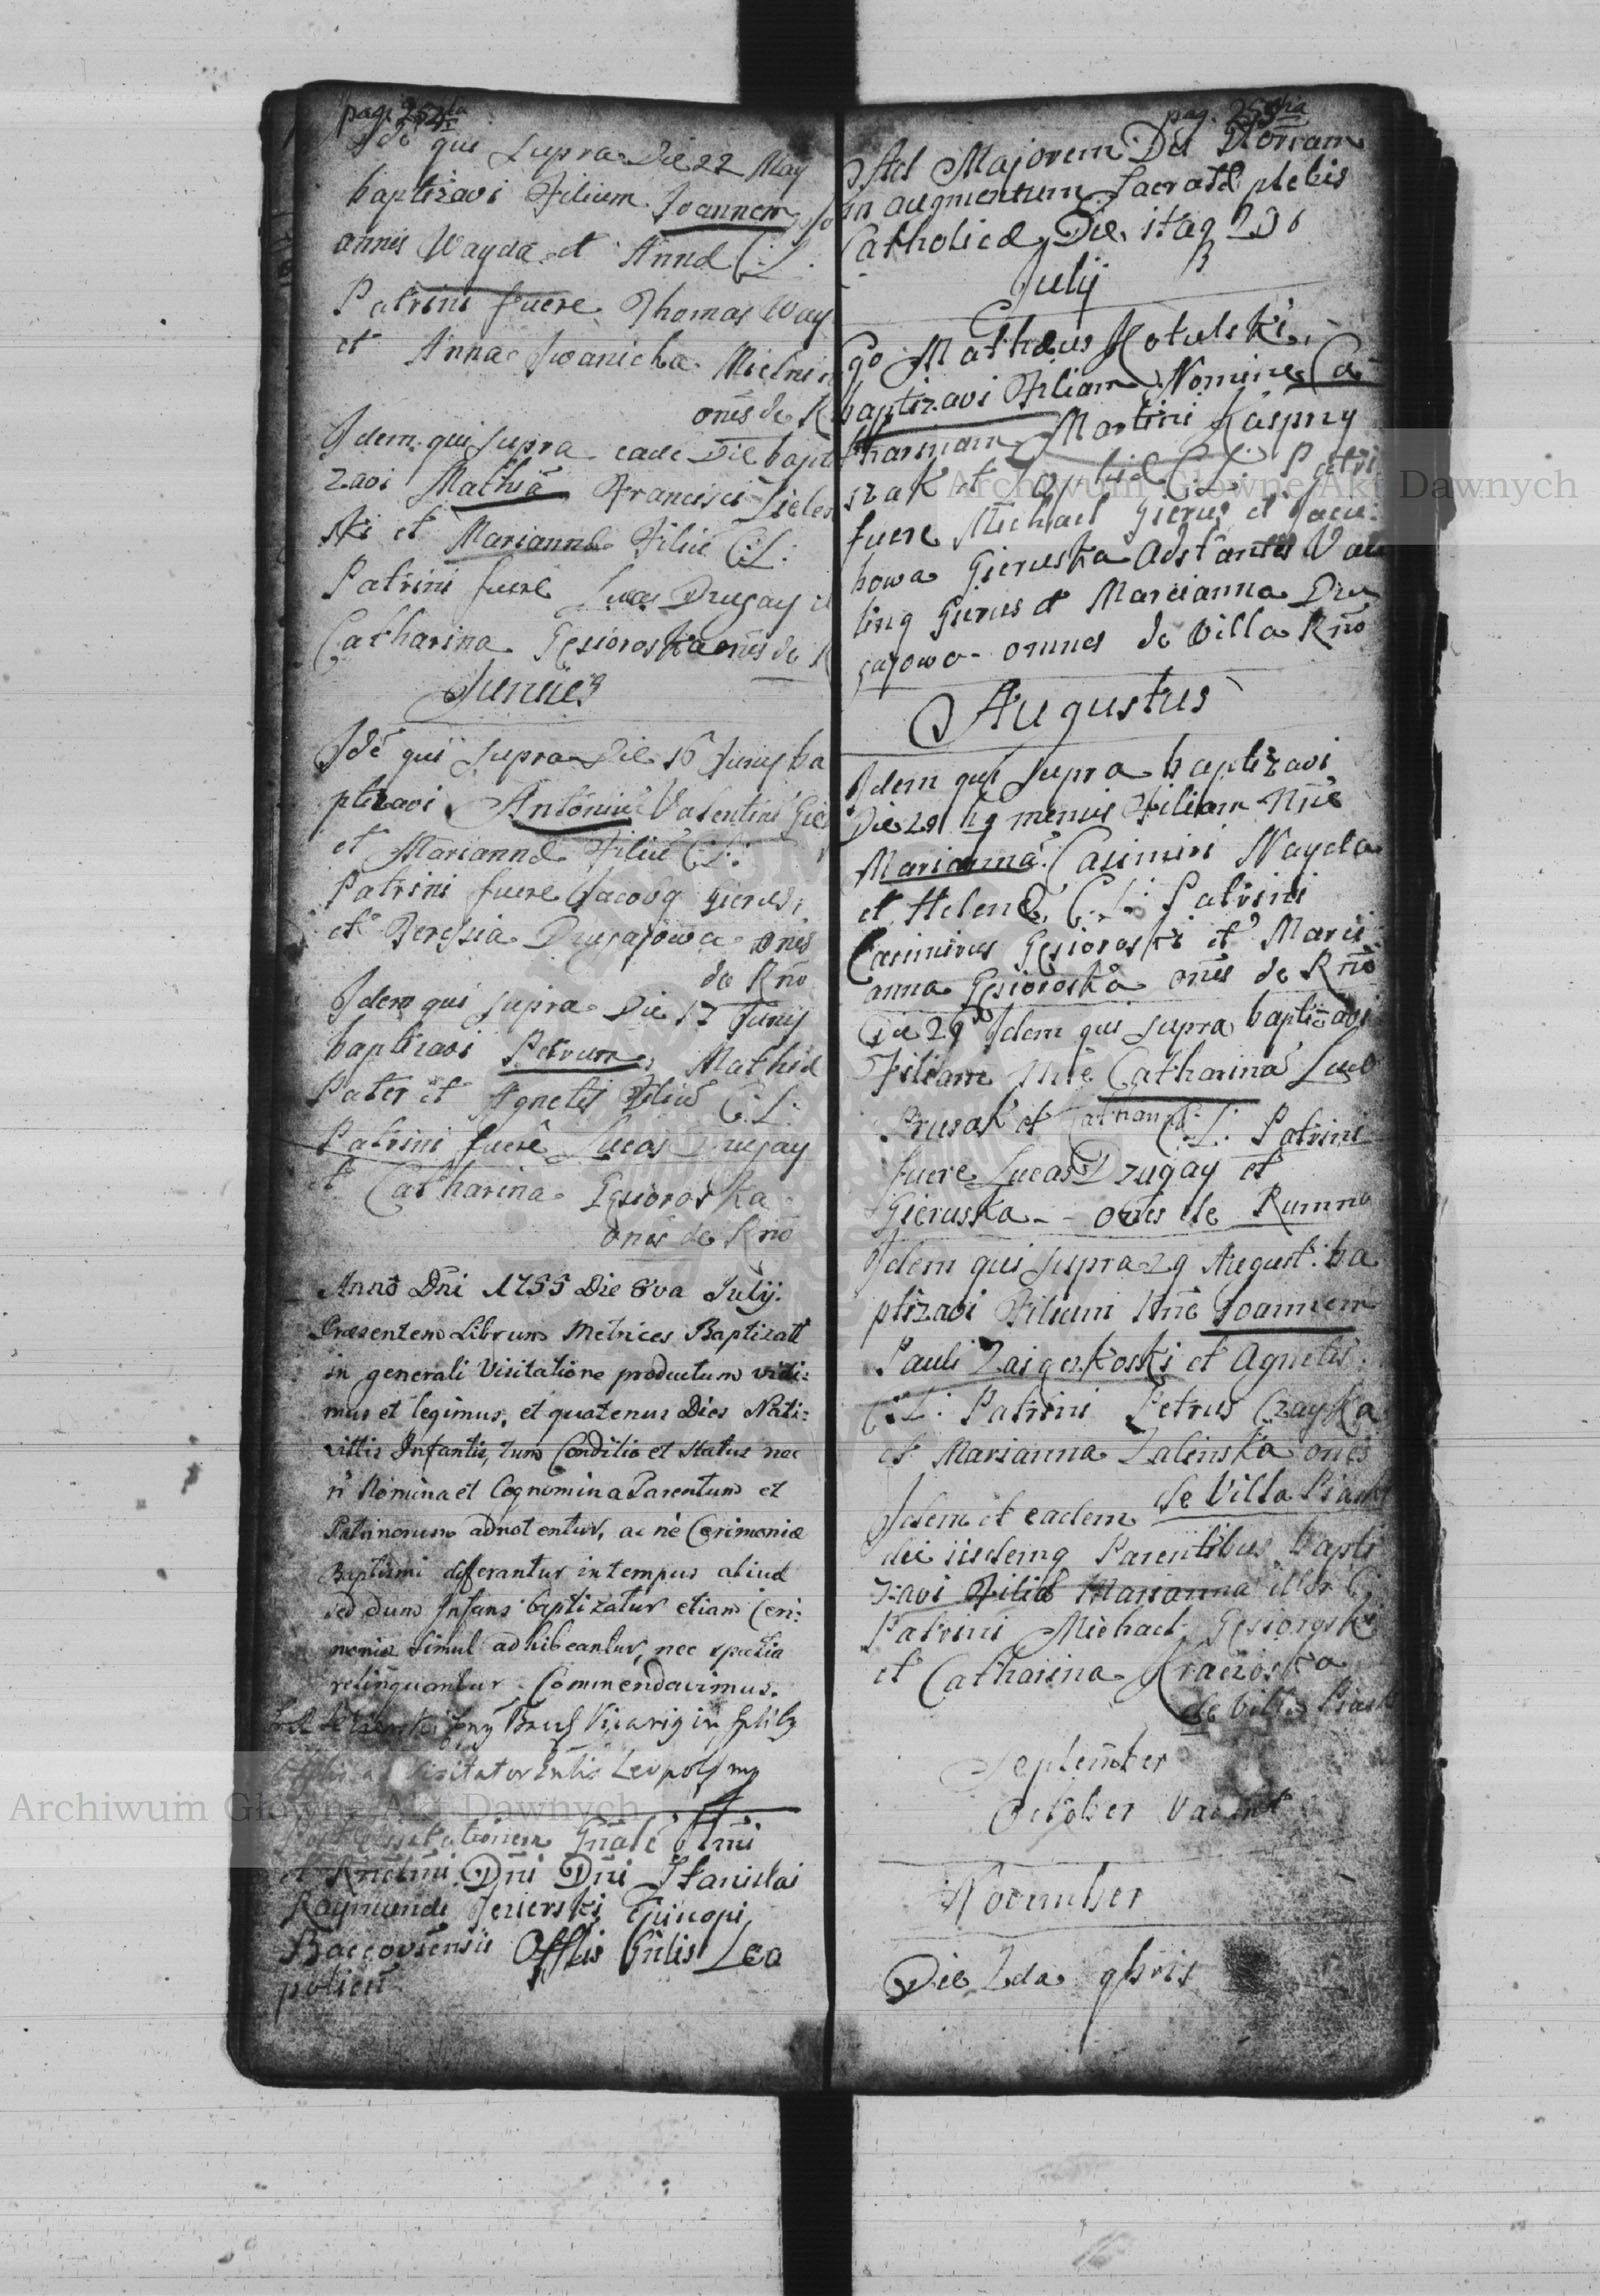 pag. 254ta
Idē qui Supra Die 22 May
baptizavi Filium Joannem Jo
annis Wayda et Annæ C: L:
Patrini fuere Thomas Way
et Anna Iwanicka
onēs de R
Idem qui supra eadē Die bapti
zavi Mathiā Francisci
ski et Mariannæ Filiū C: L:
Patrini fuere Lucas Drugay
Catharina Gęsioroska onēs de R
Junius
Idē qui supra Die 16 Junij ba
ptizavi Antoniū Valentini Gie
et Mariannæ Filiū C: L:
Patrini fuere Jacobq Gierus
et Drugajowa onēs
de Rño
Idem qui supra Die 17 Junij
baptizavi Petrum Mathiæ
Pater et Agnetis Filiū C: L:
Patrini fuere Lucas Drugay
et Catharina Gęsioroska
onēs de Rño
Anno Dñi 1755 Die 8va Julij.
Præsentem Librum Metrices Baptizatt
in generali Visitatione productum vidi:
mus et legimus, et quatenus Dies Nati:
vittis Infantis, tum Conditio et Status nec
ñ Nomina et Cognomina Parentum et
Patrinorum adnotentur, ac nè Cerimoniæ
Baptismi differantur in tempus aliud
sed dum Infans baptizatur etiam Ceri:
moniæ simul adhibeantur, nec spatia
relinquantur Commendavimus.
Vicariq in
Visitator Leopol mp
Post Visitationem Gñalē Illmi
et Rñdmi Dñi Dñi Stanislai
Raymundi Jezierski Episcopi
Baccoviensis Offlis Gñlis Leo
polien
pag. 255ta
Ad Majorem Dei Gloriam
in augmentum Sacratæ plebis
Catholicæ Die itaq 23
Julij
Ego Mathæus Kotulski
baptizavi Filiam Nomine Ca
tharinam Martini Kaspmy
szak et Sophiæ C: L: Patri
fuere Michael Gierus et Jacu:
bowa Gieruska Adstantes Vale
tinq Gierus et Marcianna Dru
gajowa omnes de Villa Rño
Augustus
Idem qui supra baptizavi
Die 29 hq mensis Filiam Nñe
Mariannā Casimiri Wayda
et Helenæ C: L: Patrini
Casimirus Gęsioroski et Mari
anna Gęsioroska onēs de Rño
Die 29 Idem qui supra baptizavi
Filiam Nñe Catharinā Lucæ
Prusak et Catharinæ C: L: Patrini
fuere Lucas Drugay et
Gieruska - - onēs de Rumno
Idem qui supra 29 August: ba
ptizavi Filium Nñe Joannem
Pauli et Agnetis
C: L: Patrini Petrus Czayka
et Marianna Zalinska onēs
de Villa Piask
Idem et eadem
die iisdemq Parentibus bapti
zavi Filiā Marianna
Patrini Michael Gęsioroski
et Catharina
de Villa Piask
September
October Vacant
November
Die 2da 9bris